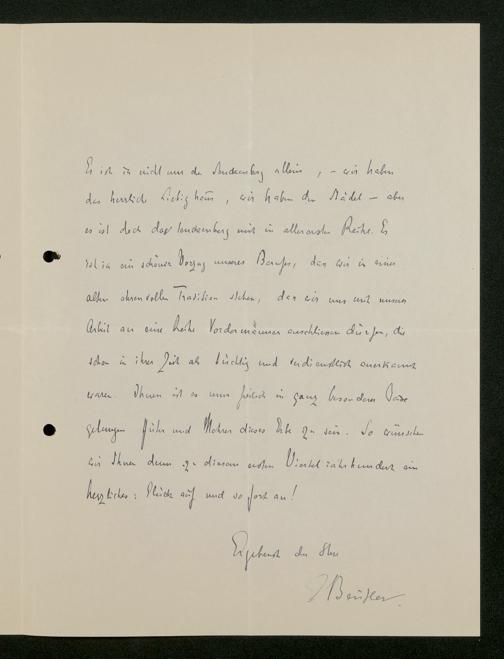 Es ist ja nicht nur der Senckenberg allein, – wir haben
das herrliche Liebighaus, wir haben den Städel – aber
es ist doch das Senckenberg mit in allererster Reihe. Es
ist ja ein schöner Vorzug unseres Berufes, dass wir in einer
alten ehrenvollen Tradition stehen, dass wir uns mit unserer
Arbeit an eine Reihe Vordermänner anschliessen dürfen, die
schon in ihrer Zeit als tüchtig und verdienstlich anerkannt
waren. Ihnen ist es nun freilich in ganz besonderem Masse
gelungen und Mehrer dieses Erbe zu sein. So wünschen
wir Ihnen denn zu diesem ersten Vierteljahrhundert ein
herzliches: Glück auf und so fort an!
Ergebenst der Ihre
Beutler.